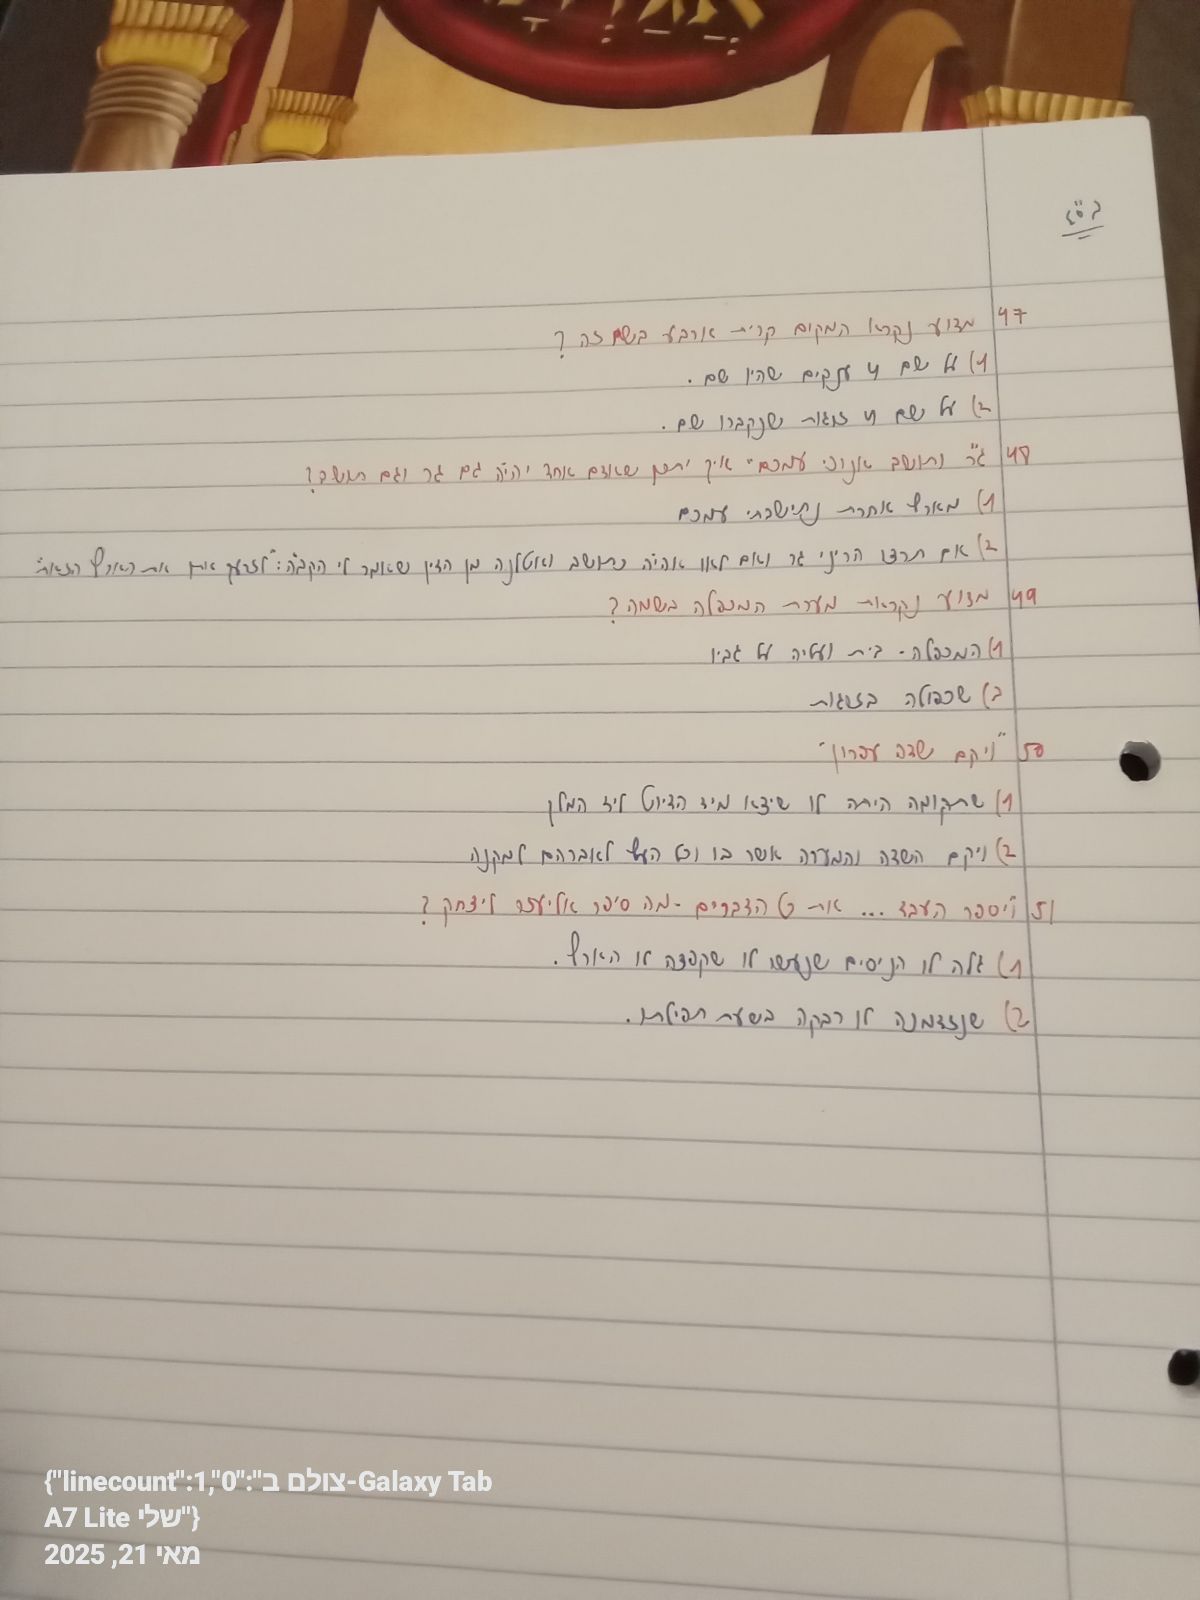 בס"ד
47 מדוע נקרא המקום קרית ארבע בשם זה?
1) על שם 4 ענקים שהיו שם.
2) על שם 4 זוגות שנקברו שם.
48 "גר ותושב אנוכי עמכם" איך יתכן שאדם אחד יהיה גם גר וגם תושב?
1) מארץ אחרת נתישבתי עמכם
2) אם תרצו הריני גר ואם לאו אהיה כתושב ואטלנה מן הדין שאמר לי הקב"ה: "לזרעך אתן את הארץ הזאת"
49 מדוע נקראת מערת המכפלה בשמה?
1) המכפלה - בית ועליה על גביו
2) שכפולה בזוגות
50 "ויקם שדה עפרון"
1) שתקומה היתה לו שיצא מיד הדיוט ליד המלך
2) ויקם השדה והמערה אשר בו וכל העץ לאברהם למקנה
51 "ויספר העבד ... את כל הדברים - מה סיפר אליעזר ליצחק?
1) גלה לו הניסים שנעשו לו שקפצה לו הארץ.
2) שנזדמנה לו רבקה בשעת תפילתו.
{"linecount":1,"0":"צולם ב-Galaxy Tab
A7 Lite שלי"}
מאי 21, 2025